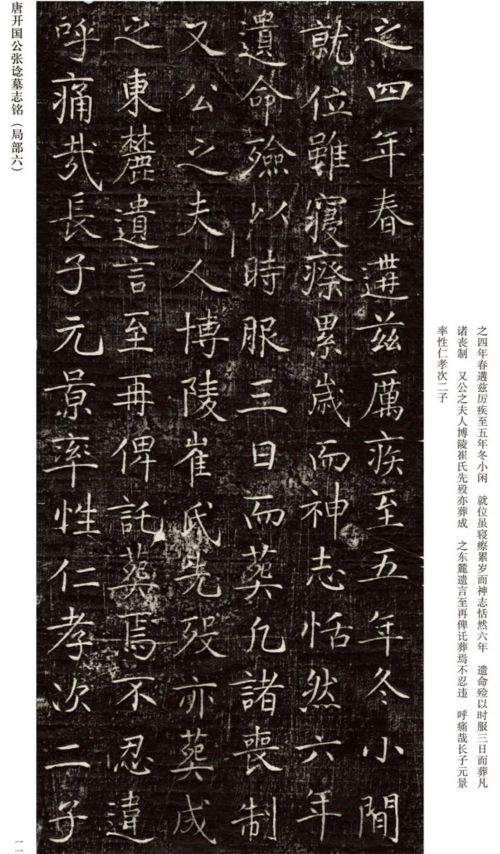 之四年春遘兹厲疾至五年冬小閒
就位雖寢瘵累歲而神志恬然六年
遺命殮以時服三日而葬凡諸喪制
又公之夫人博陵崔氏先歿亦葬成
之東麓遺言至再俾託葬焉不忍違
呼痛哉長子元景率性仁孝次二子
之四年春遘兹厉疾至五年冬小闲　就位虽寝瘵累岁而神志恬然六年　遗命殓以时服三日而葬凡
诸丧制　又公之夫人博陵崔氏先殁亦葬成　之东麓遗言至再俾讬葬焉不忍违　呼痛哉长子元景
率性仁孝次二子
唐开国公张谂墓志铭（局部六）
一一